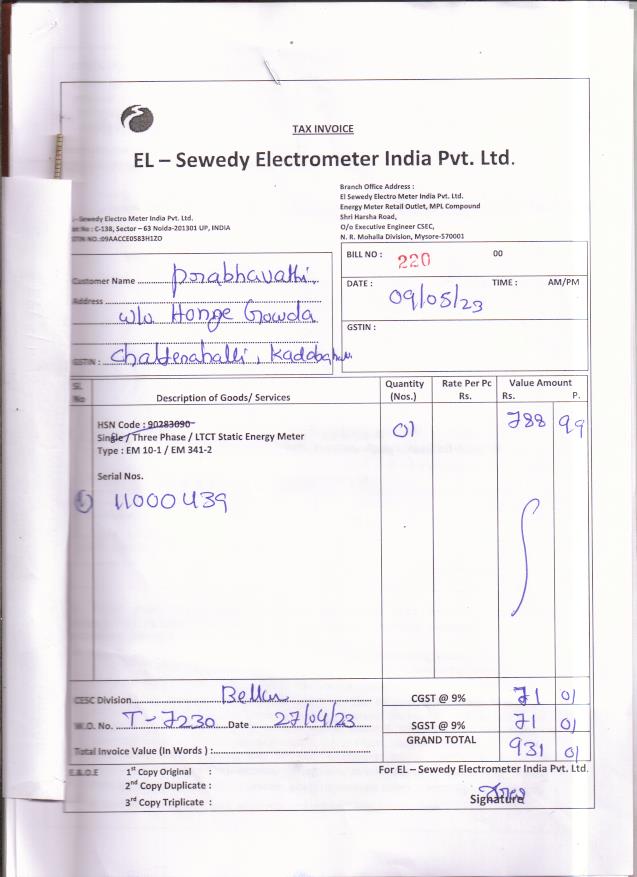 TAX INVOICE
EL – Sewedy Electrometer India Pvt. Ltd.
Branch Office Address :
El Sewedy Electro Meter India Pvt. Ltd.
Energy Meter Retail Outlet, MPL Compound
Shri Harsha Road,
O/o Executive Engineer CSEC,
N. R. Mohalla Division, Mysore-570001
Sewedy Electro Meter India Pvt. Ltd.
: C-138, Sector – 63 Noida-201301 UP, INDIA
NO.:09AACCE0583H1Z0
BILL NO : 220 00
DATE : 09/05/23 TIME : AM/PM
GSTIN :
Customer Name Prabhavathi
Address
w/o Honge Gowda
GSTIN :
Sl. No Description of Goods/ Services Quantity (Nos.) Rate Per Pc Rs. Value Amount Rs. P.
HSN Code : 90283090 01 788 99
Single / Three Phase / LTCT Static Energy Meter
Type : EM 10-1 / EM 341-2
Serial Nos.
1) 11000439
CESC Division Bellur CGST @ 9% 71 01
W.O. No. T-7230 Date 27/04/23 SGST @ 9% 71 01
Total Invoice Value (In Words ) : GRAND TOTAL 931 01
E.&.O.E 1st Copy Original :
2nd Copy Duplicate :
3rd Copy Triplicate :
For EL – Sewedy Electrometer India Pvt. Ltd.
Signature